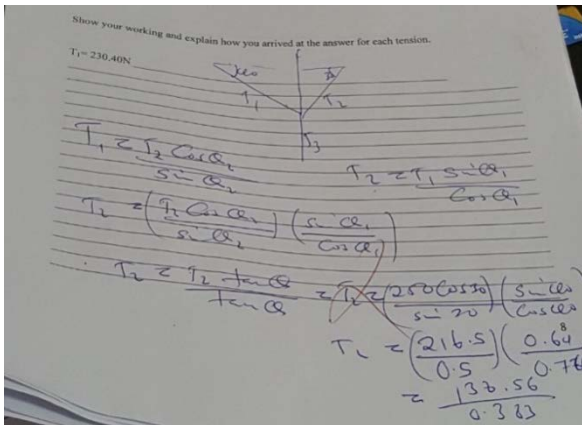 Show your working and explain how you arrived at the answer for each tension.
T₁= 230.40N
T₁ T₂
T₃
T₁ = T₂ Cos θ₂ / sin θ₂
T₂ = T₁ sin θ₁ / Cos θ₁
T₂ = (T₂ Cos θ₂ / sin θ₂) (sin θ₁ / Cos θ₁)
T₂ = T₂ tan θ / tan θ = T₂ = (250 Cos 30 / sin 20) (sin / Cos)
= (216.5 / 0.5) (0.64 / 0.77)
= 138.56 / 0.383